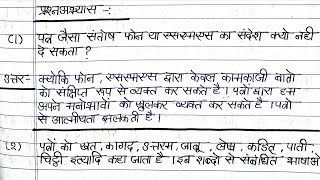 प्रश्नअभ्यास -:
(1) पत्र जैसा संतोष फोन या एसएमएस का संदेश क्यो नही
दे सकता ?
उत्तर- क्योकि फोन, एसएमएस द्वारा केवल कामकाजी बातो
का संक्षिप्त रूप से व्यक्त कर सकते है । पत्रो द्वारा हम
अपने मनोभावो को खुलकर व्यक्त कर सकते है । पत्रो
से आत्मीयता झलकती है ।
(2) पत्रों को खत, कागद, उत्तरम, जाबू, लेख, कडित, पाती
चिट्ठी इत्यादि कहा जाता है । इन शब्दो से संबंधित भाषाओ